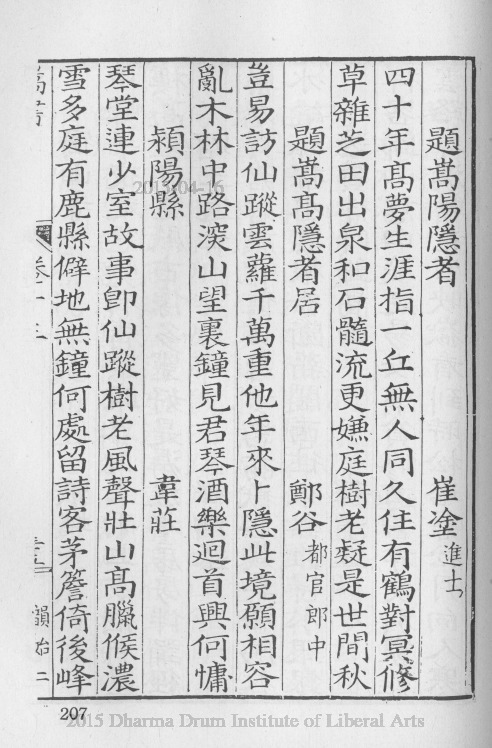 題嵩陽隱者 崔塗進士
四十年髙夢生涯指一丘無人同久住有鶴對冥修
草雜芝田出泉和石髓流更嫌庭樹老疑是世間秋
題嵩髙隱者居 鄭谷都官郎中
豈易訪仙蹤雲蘿千萬重他年來卜隱此境願相容
亂木林中路深山望裏鐘見君琴酒樂迴首興何慵
潁陽縣 韋莊
琴堂連少室故事卽仙蹤樹老風聲壯山髙臘候濃
雪多庭有鹿縣僻地無鐘何處留詩客茅簷倚後峰
嵩書 卷十二
207
2015-04-16
2015 Dharma Drum Institute of Liberal Arts